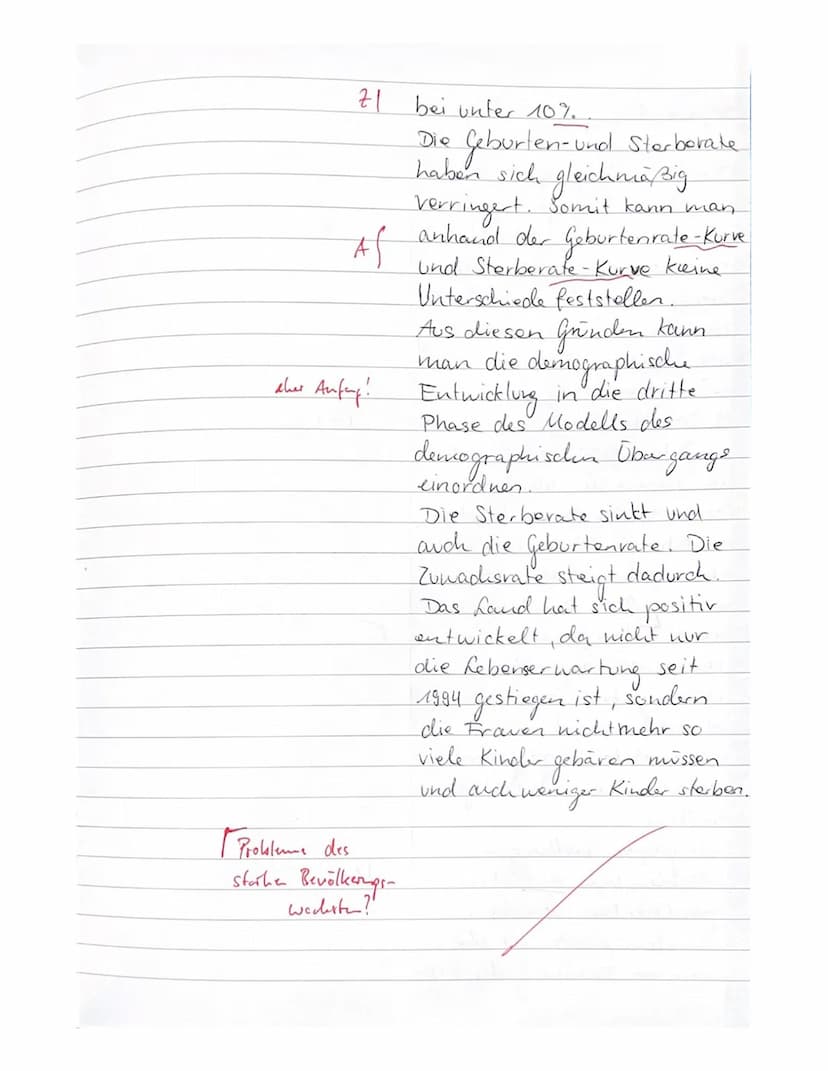 Z| bei unter 10%.
Die Geburten- und Sterberate
haben sich gleichmäßig
verringert. Somit kann man
anhand der Geburtenrate-Kurve
A∫ und Sterberate-Kurve kleine
Unterschiede feststellen.
Aus diesen Gründen kann
man die demographische
eher Anfang! Entwicklung in die dritte
Phase des Modells des
demographischen Übergangs
einordnen.
Die Sterberate sinkt und
auch die Geburtenrate. Die
Zuwachsrate steigt dadurch.
Das Land hat sich positiv
entwickelt, da nicht nur
die Lebenserwartung seit
1994 gestiegen ist, sondern
die Frauen nichtmehr so
viele Kinder gebären müssen
und auch weniger Kinder sterben.
Probleme des
starken Bevölkerungs-
wachstums?